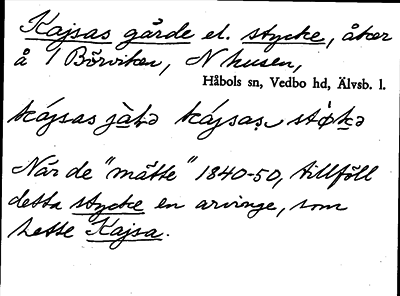 Kajsas gärde el. stycke, åker
å 1 Börviken, N husen,
Håbols sn, Vedbo hd, Älvsb. l.
kájsas
När de "mätte" 1840-50, tillföll
detta stycke en arvinge, som
hette Kajsa.